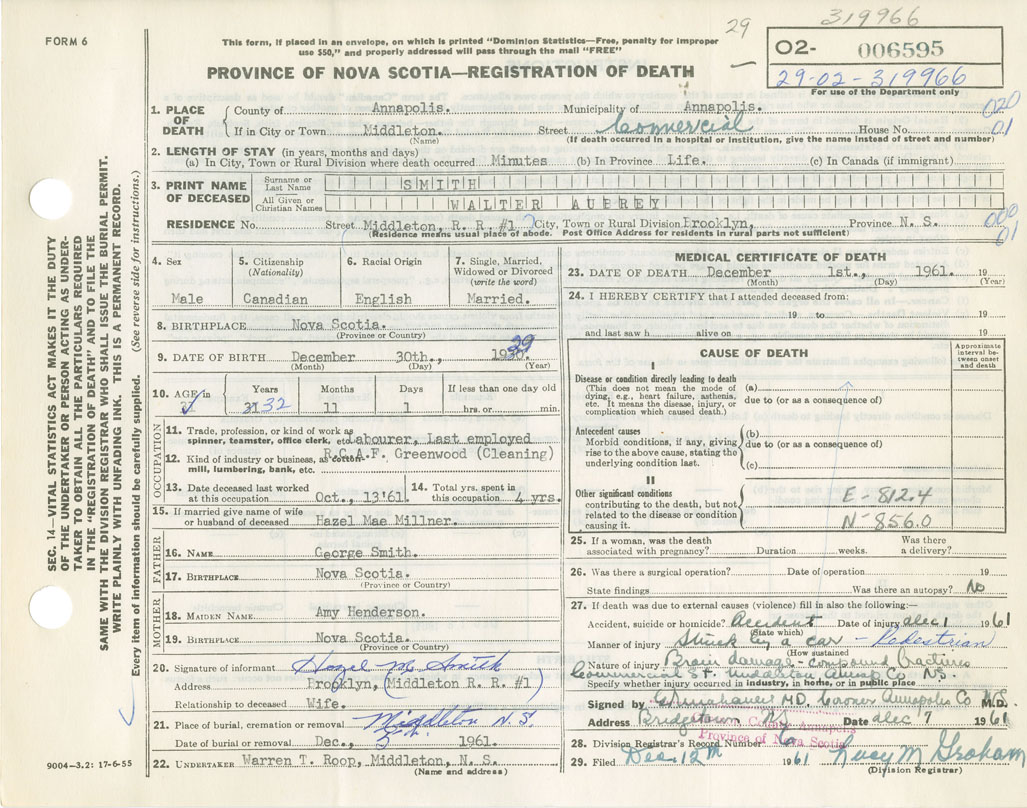 319966
FORM 6
This form, if placed in an envelope, on which is printed "Dominion Statistics—Free, penalty for improper
use $50," and properly addressed will pass through the mail "FREE"
29
O2- 006595
29-02-319966
For use of the Department only
PROVINCE OF NOVA SCOTIA—REGISTRATION OF DEATH
SEC. 14—VITAL STATISTICS ACT MAKES IT THE DUTY
OF THE UNDERTAKER OR PERSON ACTING AS UNDER-
TAKER TO OBTAIN ALL THE PARTICULARS REQUIRED
IN THE "REGISTRATION OF DEATH" AND TO FILE THE
SAME WITH THE DIVISION REGISTRAR WHO SHALL ISSUE THE BURIAL PERMIT.
WRITE PLAINLY WITH UNFADING INK. THIS IS A PERMANENT RECORD.
Every item of information should be carefully supplied. (See reverse side for instructions.)
1. PLACE OF DEATH County of Annapolis. Municipality of Annapolis. 020
If in City or Town Middleton. Street Commercial House No. 01
(Name) (If death occurred in a hospital or institution, give the name instead of street and number)
2. LENGTH OF STAY (in years, months and days)
(a) In City, Town or Rural Division where death occurred Minutes (b) In Province Life. (c) In Canada (if immigrant)
3. PRINT NAME OF DECEASED Surname or Last Name SMITH
All Given or Christian Names WALTER AUBREY
RESIDENCE No. Street Middleton, R. R. #1 City, Town or Rural Division Brooklyn, Province N. S. 000
01
(Residence means usual place of abode. Post Office Address for residents in rural parts not sufficient)
4. Sex 5. Citizenship (Nationality) 6. Racial Origin 7. Single, Married, Widowed or Divorced (write the word)
Male Canadian English Married.
8. BIRTHPLACE Nova Scotia.
(Province or Country)
9. DATE OF BIRTH December 30th., 29
(Month) (Day) (Year)
10. AGE in Years Months Days If less than one day old
31 32 11 1 hrs. or min.
OCCUPATION
11. Trade, profession, or kind of work as
spinner, teamster, office clerk, etc. Labourer, Last employed
12. Kind of industry or business, as cotton R.C.A.F. Greenwood (Cleaning)
mill, lumbering, bank, etc.
13. Date deceased last worked at this occupation Oct., 13'61. 14. Total yrs. spent in this occupation 4 yrs.
15. If married give name of wife
or husband of deceased Hazel Mae Millner.
FATHER
16. NAME George Smith.
17. BIRTHPLACE Nova Scotia.
(Province or Country)
MOTHER
18. MAIDEN NAME Amy Henderson.
19. BIRTHPLACE Nova Scotia.
(Province or Country)
20. Signature of informant Hazel M. Smith
Address Brooklyn, (Middleton R. R. #1)
Relationship to deceased Wife.
21. Place of burial, cremation or removal Middleton N.S
Date of burial or removal Dec., 1961.
22. UNDERTAKER Warren T. Roop, Middleton, N. S.
(Name and address)
9004-3.2: 17-6-55
MEDICAL CERTIFICATE OF DEATH
23. DATE OF DEATH December 1st., 1961. 19
(Month) (Day) (Year)
24. I HEREBY CERTIFY that I attended deceased from:
19 to 19
and last saw h alive on 19
CAUSE OF DEATH
Approximate interval between onset and death
I
Disease or condition directly leading to death
(This does not mean the mode of
dying, e.g., heart failure, asthenia,
etc. It means the disease, injury, or
complication which caused death.)
(a)
due to (or as a consequence of)
Antecedent causes
Morbid conditions, if any, giving
rise to the above cause, stating the
underlying condition last.
(b)
due to (or as a consequence of)
(c)
II
Other significant conditions
contributing to the death, but not
related to the disease or condition
causing it.
E-812.4
N-856.0
25. If a woman, was the death
associated with pregnancy? Duration weeks. Was there a delivery?
26. Was there a surgical operation? Date of operation 19
State findings Was there an autopsy? No
27. If death was due to external causes (violence) fill in also the following:—
Accident, suicide or homicide? Accident Date of injury dec 1 1961
(State which)
Manner of injury Struck by a car - Pedestrian
(How sustained)
Nature of injury Brain damage - compound fractures
Commercial St. Middleton Annap Co N.S.
Specify whether injury occurred in industry, in home, or in public place
Signed by M.D. Coroner Annapolis Co M.D.
Address Bridgetown NS Date dec 7 1961
County Annapolis
Province of Nova Scotia
28. Division Registrar's Record Number
29. Filed Dec 12th 1961 Lucy M Graham
(Division Registrar)